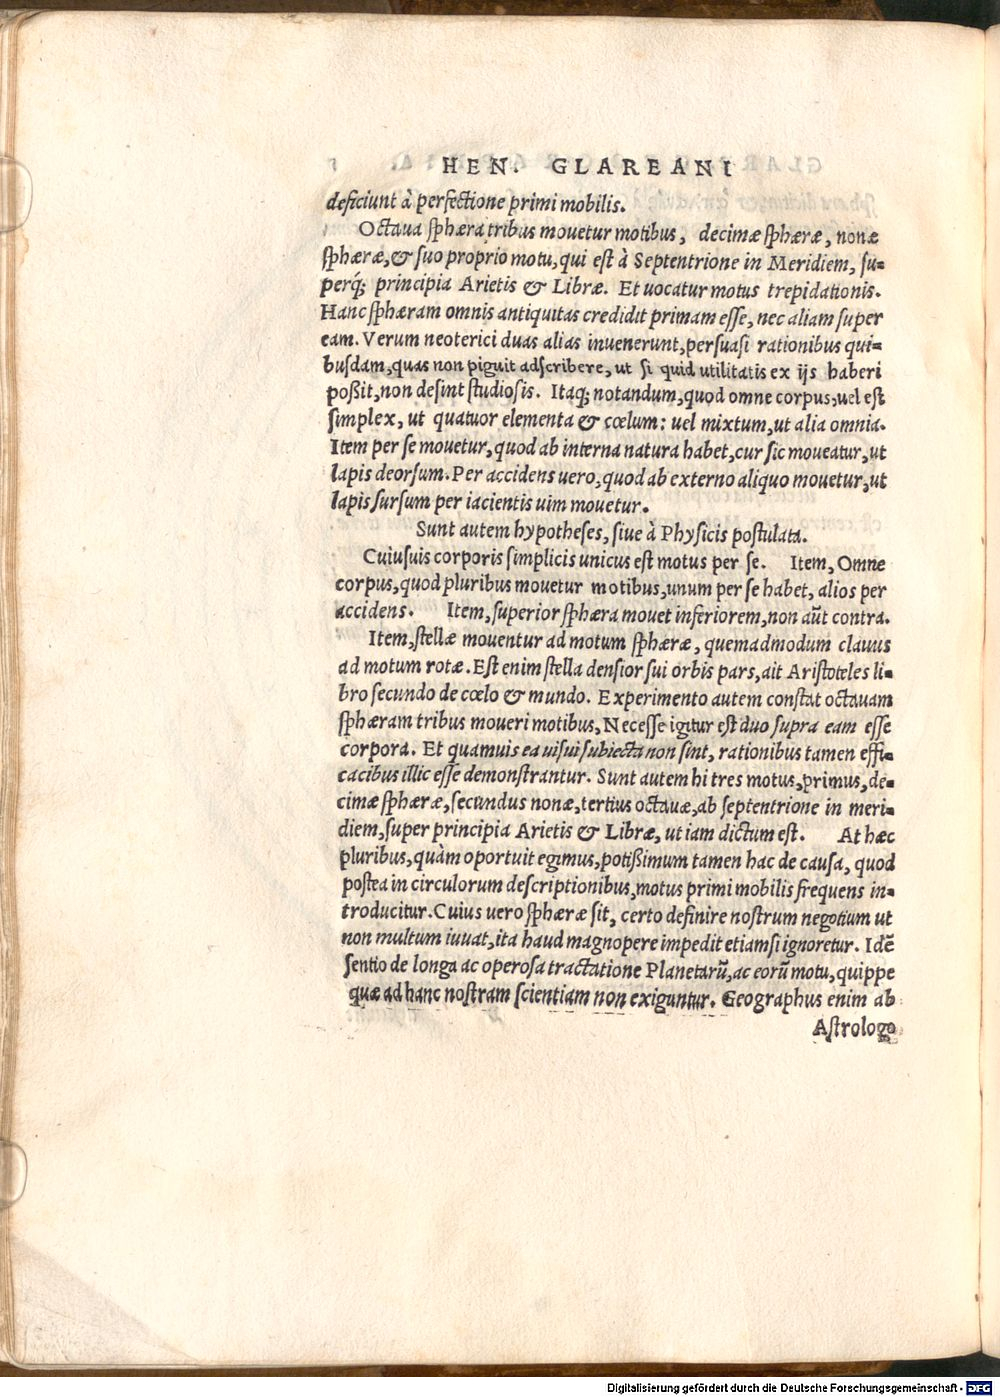 HEN. GLAREANI
deficiunt à perfectione primi mobilis.
Octaua sphæra tribus mouetur motibus, decimæ sphæræ, nonæ
sphæræ, & suo proprio motu, qui est à Septentrione in Meridiem, su=
perq́; principia Arietis & Libræ. Et uocatur motus trepidationis.
Hanc sphæram omnis antiquitas credidit primam esse, nec aliam super
eam. Verum neoterici duas alias inuenerunt, persuasi rationibus qui=
busdam, quas non piguit adscribere, ut si quid utilitatis ex ijs haberi
poßit, non desint studiosis. Itaq; notandum, quod omne corpus, uel est
simplex, ut quatuor elementa & cœlum: uel mixtum, ut alia omnia.
Item per se mouetur, quod ab interna natura habet, cur sic moueatur, ut
lapis deorsum. Per accidens uero, quod ab externo aliquo mouetur, ut
lapis sursum per iacientis uim mouetur.
Sunt autem hypotheses, siue à Physicis postulata.
Cuiusuis corporis simplicis unicus est motus per se. Item, Omne
corpus, quod pluribus mouetur motibus, unum per se habet, alios per
accidens. Item, superior sphæra mouet inferiorem, non aūt contra.
Item, stellæ mouentur ad motum sphæræ, quemadmodum clauus
ad motum rotæ. Est enim stella densior sui orbis pars, ait Aristoteles li=
bro secundo de cœlo & mundo. Experimento autem constat octauam
sphæram tribus moueri motibus, Necesse igitur est duo supra eam esse
corpora. Et quamuis ea uisui subiecta non sint, rationibus tamen effi=
cacibus illic esse demonstrantur. Sunt autem hi tres motus, primus, de=
cimæ sphæræ, secundus nonæ, tertius octauæ, ab septentrione in meri=
diem, super principia Arietis & Libræ, ut iam dictum est. At hæc
pluribus, quàm oportuit egimus, potißimum tamen hac de causa, quod
postea in circulorum descriptionibus, motus primi mobilis frequens in=
troducitur. Cuius uero sphæræ sit, certo definire nostrum negotium ut
non multum iuuat, ita haud magnopere impedit etiamsi ignoretur. Idē
sentio de longa ac operosa tractatione Planetarū, ac eorū motu, quippe
quæ ad hanc nostram scientiam non exiguntur. Geographus enim ab
Astrologo
Digitalisierung gefördert durch die Deutsche Forschungsgemeinschaft - DFG